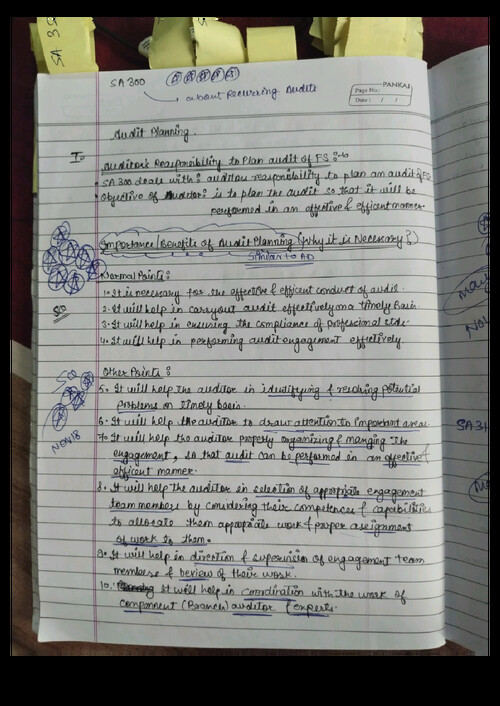 SA 3
SA 300
about Recurring Audits
PANKAJ
Page No.:
Date: / /
Audit Planning.
I.
Auditor's Responsibility to Plan audit of FS :-
• SA 300 deals with: auditors responsibility to plan an audit of FS
• Objective of Auditor: is to plan the audit so that it will be
performed in an effective & efficent manner.
Importance/Benefits of Audit Planning (Why it is Necessary?)
Similar to AD
Normal Points:
1. It is necessary for the effective & efficent conduct of audit.
2. It will help in carryout audit effectively on a timely basis.
3. It will help in ensuring the compliance of professional stds.
4. It will help in performing audit engagement effectively
Other Points:
5. It will help the auditor in identifying & resolving potential
problems on timely basis.
6. It will help the auditor to draw attention to important area
7. It will help the auditor properly organizing & manging the
engagement, so that audit can be performed in an effective &
efficent manner.
8. It will help the auditor in selection of appropriate engagement
team members by considering their competences & capabilities
to allocate them appropriate work & proper assignment
of work to them.
9. It will help in direction & supervision of engagement team
members & review of their work.
10. It will help in coordination with the work of
component (Branch) auditor & experts.
NOV18
SA 31